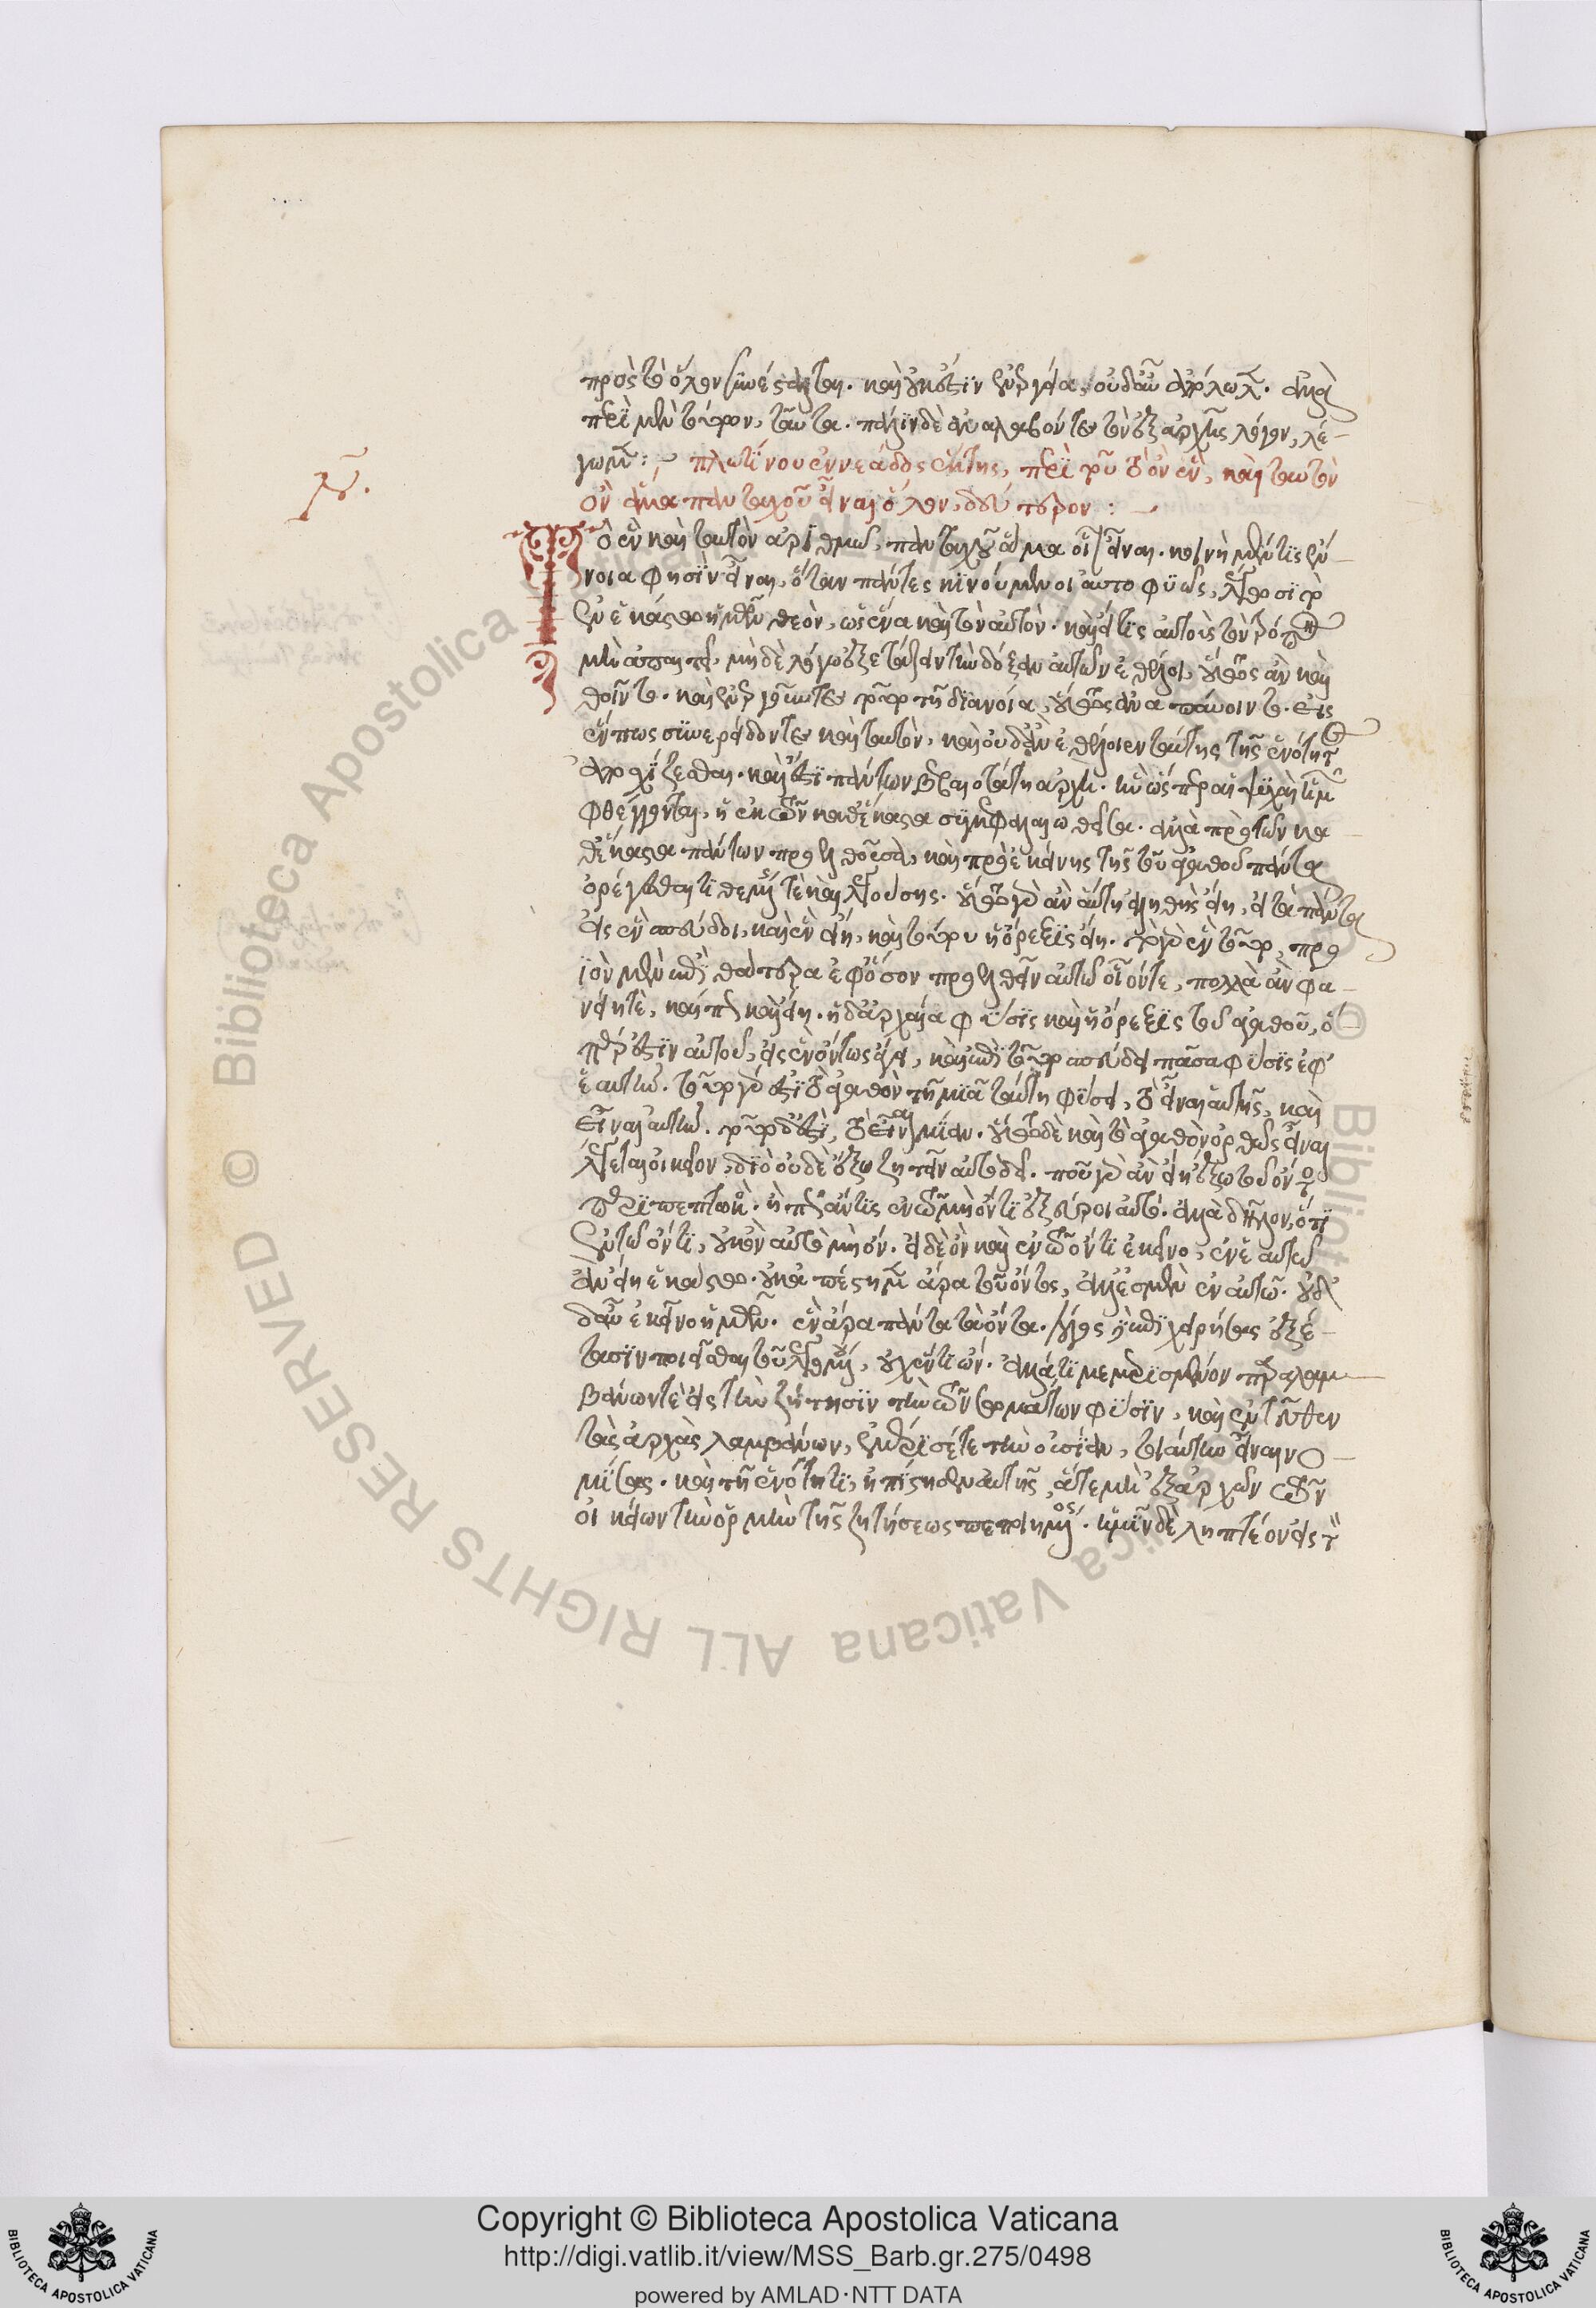 πρὸς τὸ ὅλον συνέσταλται. καὶ οὐκ ἔστιν ἐνεργεία, οὐδ' αὖ ἀπόλωλεν. ἀλλὰ
περὶ μὲν τούτων, ταῦτα. πάλιν δὲ ἀναλαβόντες τὸν ἐξ ἀρχῆς λόγον, λέ-
γωμεν :~ πλωτίνου ἐννεάδος ἕκτης, περὶ τοῦ τὸ ὂν ἓν, καὶ ταυτὸν
ὂν ἅμα πανταχοῦ εἶναι ὅλον, δεύτερον :~
Τὸ ἓν καὶ ταυτὸν ἀριθμῶ, πανταχοῦ ἅμα ὅλον εἶναι. κοινὴ μέν τις ἔν-
νοια φησὶν εἶναι, ὅταν πάντες κινούμενοι αὐτοφυῶς, λέγωσι τὸν
ἐν ἑκάστω ἡμῶν θεὸν, ὡς ἕνα καὶ τὸν αὐτόν. καὶ εἴ τις αὐτοὺς τὸν τρόπον
μὴ ἀπαιτεῖ, μὴ δὲ λόγω ἐξετάζειν τὴν δόξαν αὐτῶν ἐθέλοι, οὕτως ἂν καὶ
θοῖντο. καὶ ἐνεργοῦντες τοῦτο τῆ διανοία, οὕτως ἀναπαύοιντο. εἰς
ἕν πως συνερείδοντες καὶ ταυτὸν, καὶ οὐδ' ἂν ἐθέλοιεν ταύτης τῆς ἑνότητος
ἀποσχίζεσθαι. καὶ ἔστι πάντων βεβαιοτάτη ἀρχὴ. ἣν ὥσπερ αἱ ψυχαὶ ἡμῶν
φθέγγονται, μὴ ἐκ τῶν καθέκαστα συγκεφαλαιωθεῖσα. ἀλλὰ πρὸ τῶν κα-
θέκαστα πάντων προελθοῦσα, καὶ πρὸ ἐκείνης τῆς τοῦ ἀγαθοῦ πάντα
ὀρέγεσθαι τιθεμένης τὲ καὶ λεγούσης. οὕτω γὰρ ἂν αὕτη ἀληθὴς εἴη, εἰ τὰ πάντα
εἰς ἓν σπεύδοι, καὶ ἓν εἴη, καὶ τούτου ἡ ὄρεξις εἴη. τὸ γὰρ ἓν τοῦτο, προ
ϊὸν μὲν ἐπὶ θάτερα ἐφ' ὅσον προελθεῖν αὐτῶ οἷόν τε, πολλὰ ἂν φα-
νείη τὲ, καὶ πῶς καὶ εἴη. ἡ δ' ἀρχαία φύσις καὶ ἡ ὄρεξις τοῦ ἀγαθοῦ, ὅ-
περ ἐστὶν αὐτοῦ, εἰς ἓν ὄντως ἄγει, καὶ ἐπὶ τοῦτο σπεύδει πᾶσα φύσις ἐφ'
ἑαυτὴν. τοῦτο γάρ ἐστι τὸ ἀγαθὸν τῆ μιᾶ ταύτη φύσει, τὸ εἶναι αὑτῆς, καὶ
εἶναι αὐτὴν. τοῦτο δ' ἐστὶ, τὸ εἶναι μίαν. οὕτω δὲ καὶ τὸ ἀγαθὸν ὀρθῶς εἶναι
λέγεται οἰκεῖον, διὸ οὐδὲ ἔξω ζητεῖν αὐτὸ δεῖ. ποῦ γὰρ ἂν εἴη ἔξω τοῦ ὄντος
περιπεπτωκὸς. ἢ πῶς ἄν τις ἐν τῶ μὴ ὄντι ἐξεύροι αὐτό. ἀλλὰ δῆλον, ὅτι
ἐν τῶ ὄντι, οὐκ ὂν αὐτὸ μὴ ὄν. εἰ δὲ ὂν καὶ ἐν τῶ ὄντι ἐκεῖνο, ἐν ἑαυτῶ
ἂν εἴη ἑκάστω. οὐκ ἀπέστημεν ἄρα τοῦ ὄντος, ἀλλ' ἐσμὲν ἐν αὐτῶ. οὐδ'
δαὖ ἐκεῖνο ἡμῶν. ἓν ἄρα πάντα τὰ ὄντα. λόγος δὲ ἐπιχειρήσας ἐξέ-
τασιν ποιεῖσθαι τοῦ λεγομένου, οὐχ ἕν τι ὤν. ἀλλά τι μεμερισμένον παραλαμ-
βάνων τὲ εἰς τὴν ζήτησιν τὴν τῶν σωμάτων φύσιν, καὶ ἐντεῦθεν
τὰς ἀρχὰς λαμβάνων, ἐμέρισέ τε τὴν οὐσίαν, τοιαύτην εἶναι νο-
μίσας. καὶ τῆ ἑνότητι, ἠπίστησεν αὐτῆς, ἅτε μὴ ἐξ ἀρχῶν τῶν
οἰκείων τὴν ὁρμὴν τῆς ζητήσεως πεποιημένος. ἡμῖν δὲ ληπτέον εἰς τὴν
Copyright © Biblioteca Apostolica Vaticana
http://digi.vatlib.it/view/MSS_Barb.gr.275/0498
powered by AMLAD·NTT DATA
© Biblioteca Apostolica Vaticana ALL RIGHTS RESERVED
BIBLIOTECA APOSTOLICA VATICANA
BIBLIOTECA APOSTOLICA VATICANA